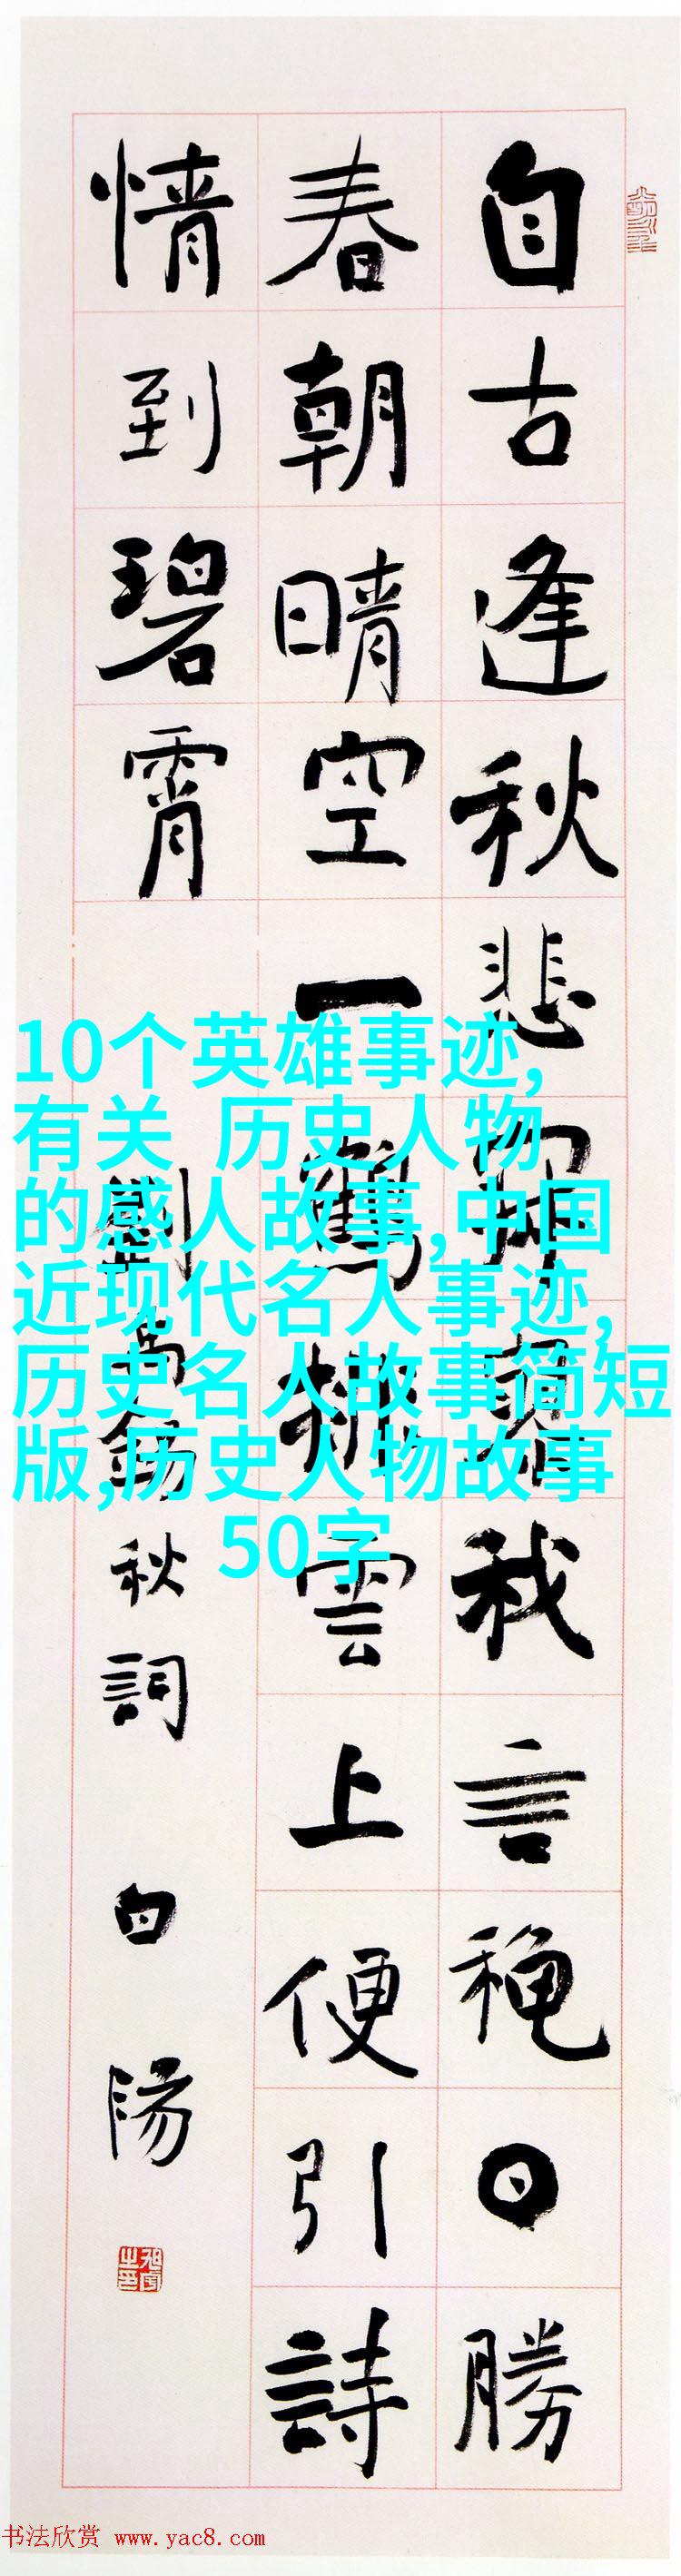 自古逢秋悲寂寥我言穐日勝
春朝晴空一鶴排雲上便引詩
情到碧霄
劉禹錫秋詞 白陽
10个英雄事迹,
有关 历史人物
的感人故事,中国
近现代名人事迹,
历史名人故事简短
版,历史人物故事
50字
书法欣赏 www.yac8.com